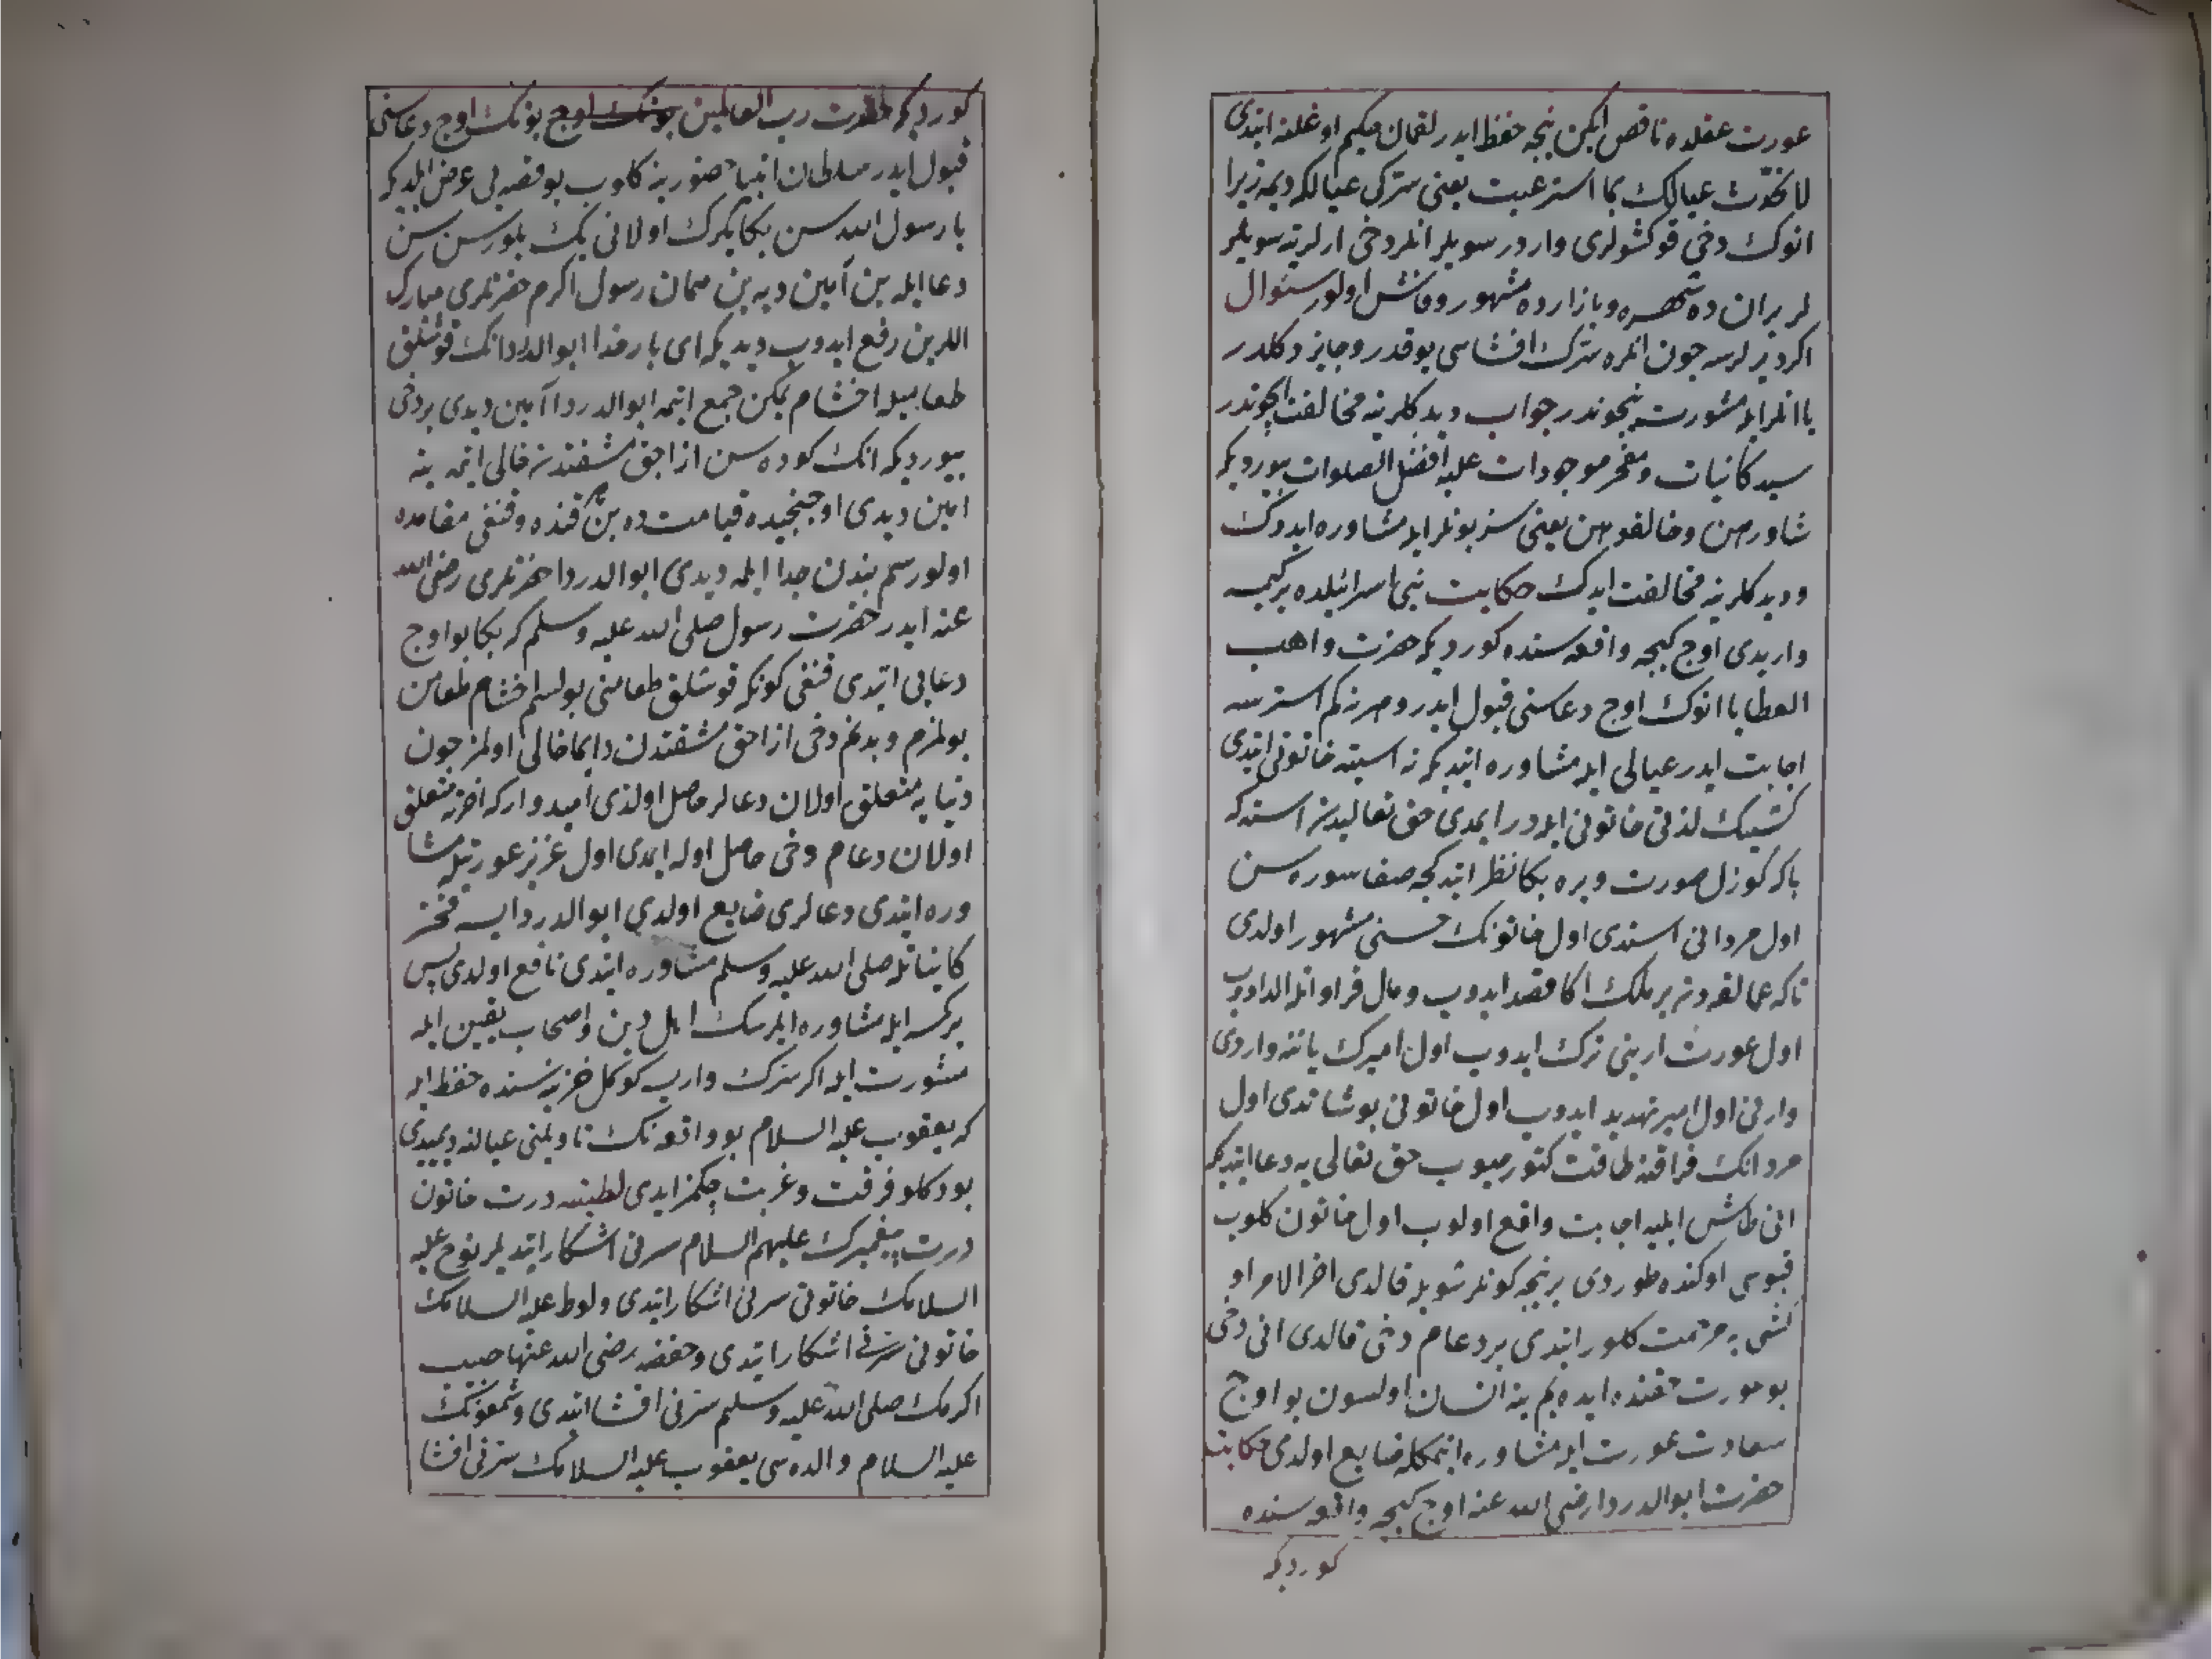 عورت عقلده ناقص ايكن نيجه حفظ ايدر لقمان حكيم اوغلنه ايتدى
لا تحدّث عيالك بما استرعيت يعنى سرّكى عيالكه ديمه زيرا
انوك دخى قوكشولرى واردر سويلر انلر دخى ارلرينه سويلر
لر بر آن ده شهره و بازارده مشهور و فاش اولور سئوال
اكر ديرلرسه چون انلره سرّك افشاسى يوقدر و جايز دكلدر
يا انلر ايله مشورت نيچوندر جواب ديدكلرينه مخالفت ايچوندر
سيد كائنات و مفخر موجودات عليه افضل الصلوات بيورديكه
شاورهن وخالفوهن يعنى سز بونلر ايله مشاوره ايدوك
و ديدكلرينه مخالفت ايدك حكايت بنى اسرائيلده بر كيمسه
واريدى اوج كيجه واقعه سنده كورديكه حضرت واهب
العطايا انوك اوج دعاسنى قبول ايدر و هر نه كم استرسه
اجابت ايدر عيالى ايله مشاوره ايتديكه نه استيه خاتونى ايتدى
كشينك لذتى خاتونى ايله در ايمدى حق تعاليدن استه كه
باكه كوزل صورت ويره بكا نظر ايتدكجه صفا سوره سن
اول مرد انى استدى اول خاتونك حسنى مشهور اولدى
تاكه عمالقه دن بر ملك اكا قصد ايدوب و مال فراوانله الداديوب
اول عورت ارينى ترك ايدوب اول اميرك ياننه واردى
وارنى اول امير تهديد ايدوب اول خاتونى بوشاتدى اول
مرد انك فراقنه طاقت كتورميوب حق تعالى يه دعا ايتديكه
انى طاش ايليه اجابت واقع اولوب اول خاتون كلوب
قپوسى اوكنده طوردى بر نيجه كونلر شويله قالدى اخر الامر او
كشى يه مرحمت كلور ايتدى بر دعام دخى قالدى انى دخى
بو عورت حقنده ايده يم ينه انسان اولسون بو اوج
سعادت عورت ايله مشاوره ايتمكله ضايع اولدى حكايت
حضرت ابوالدردا رضى الله عنه اوج كيجه واقعه سنده
كورديكه
كورديكه حضرت رب العالمين بونك اوج بونك اوج دعاسنى
قبول ايدر سلطان انبيا حضورينه كلوب بو قصه يى عرض ايلديكه
يا رسول الله سن بكا يكرك اولانى يك بلورسن سن
دعا ايله بن آمين ديه ين همان رسول اكرم حضرتلرى مبارك
اللرين رفع ايدوب ديديكه اى بار خدا ابوالدردانك قوشلق
طعاميله اخشام يمكن جمع ايتمه ابوالدردا آمين ديدى بر دخى
بيورديكه انك كوده سن ازاجق مشقتدن خالى ايتمه ينه
امين ديدى اوجنجيده قيامت ده بن قنده و قنغى مقامده
اولورسم بندن جدا ايلمه ديدى ابوالدردا حضرتلرى رضى الله
عنه ايدر حضرت رسول صلى الله عليه وسلم كه بكا بو اوج
دعايى ايتدى قنغى كونكه قوشلق طعامنى بولسم اخشام طعامن
بولمزم و بدنم دخى ازاجق مشقتدن دايما خالى اولمز چون
دنيايه متعلق اولان دعالر حاصل اولدى اميد وار كه اخرته متعلق
اولان دعام دخى حاصل اوله ايمدى اول عزيز عورتيله مشا
وره ايتدى دعالرى ضايع اولدى ابوالدردا ايسه فخر
كائناتله صلى الله عليه وسلم مشاوره ايتدى نافع اولدى پس
بر كمسه ايله مشاوره ايلرسك اهل دين و اصحاب يقين ايله
مشورت ايله اكر سرّك وارب كوكل خزينه سنده حفظ ايله
كه يعقوب عليه السلام بو واقعه نك تاويلنى عيالنه ديميدى
بو دكلو فرقت و غربت چكمز ايدى لطيفه درت خاتون
درت پيغمبرك عليهم السلام سرنى اشكار ايتديلر نوح عليه
السلامك خاتونى سرنى اشكار ايتدى ولوط عليه السلامك
خاتونى سرّنى اشكار ايتدى و حفصه رضى الله عنها حبيب
اكرمك صلى الله عليه وسلم سرّنى افشا ايتدى و شمعونك
عليه السلام والده سى يعقوب عليه السلامك سرّنى افشا